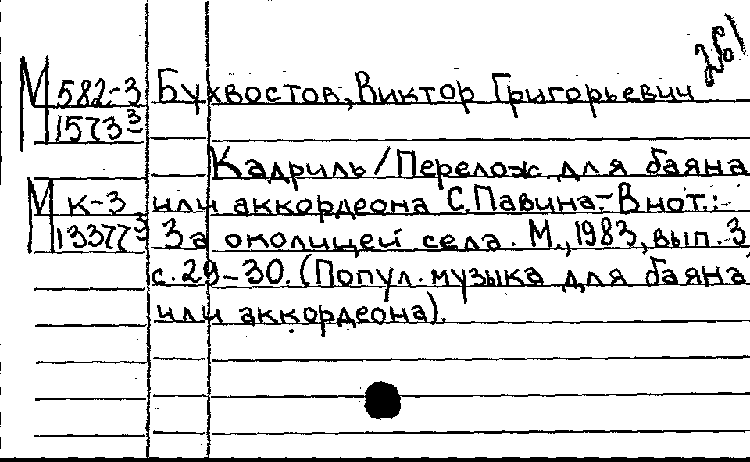 261
М 582-3 Бухвостов, Виктор Григорьевич
1573 3
Кадриль / Перелож. для баяна
М К-3 или аккордеона С. Павина.- В нот.:
13377 3 За околицей села. М., 1983, вып. 3,
с. 29-30. (Попул. музыка для баяна
или аккордеона).